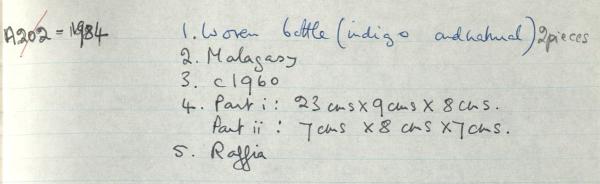 A202 = 1984 1. Woven bottle (indigo and natural) 2 pieces
2. Malagasy
3. c1960
4. Part i : 23 cms x 9 cms x 8 cms.
Part ii : 7 cms x 8 cms x 7 cms.
5. Raffia